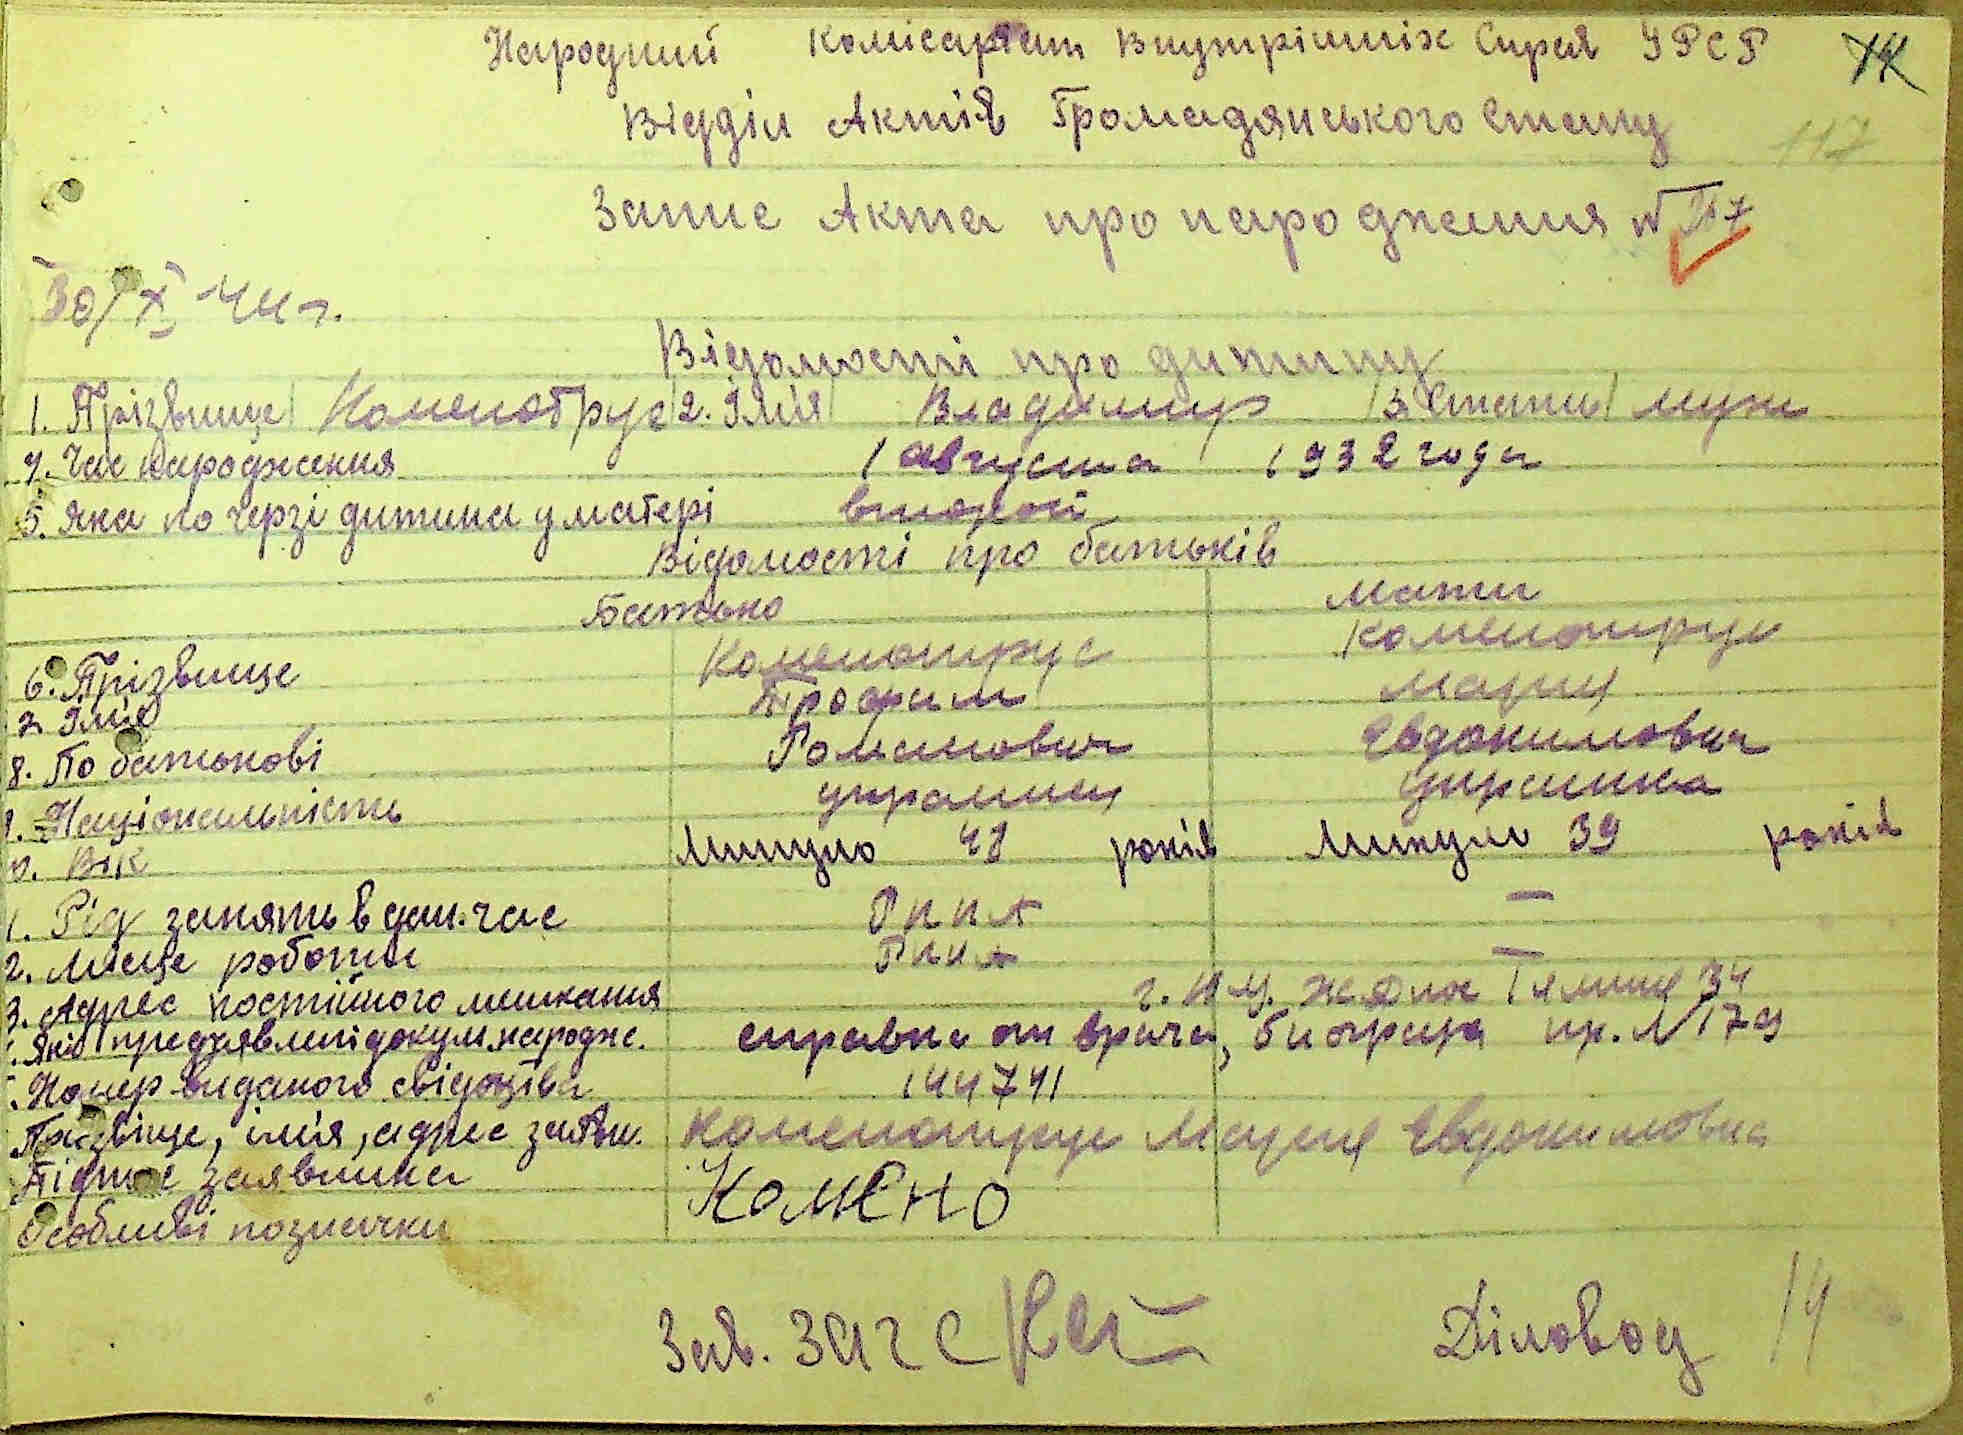 Народний Комісаріат Внутрішніх Справ УРСР
Відділ Актів Громадянського Стану
117
Запис Акта про народження №
30/X 44 г.
Відомості про дитину
1. Прізвище Коменотрус 2. Імія Владимир 3. Стать муж
4. Час народження 1 августа 1932 года
5. Яка по черзі дитина у матері второй
Відомості про батьків
Батько Мати
6. Прізвище Коменотрус Коменотрус
7. Імія Трофим Мария
8. По батькові Романович Евдокимовн
9. Національність украинец украинка
0. Вік Минуло 48 років Минуло 39 років
1. Рід занять в дан. час РККА —
2. Місце роботи РККА —
3. Адрес постійного мешкання 34
Які предъявлені докум. народж. справка от врача,
Номер виданого свідоцтва 144741
Прізвіще, імія, адрес заявн. Коменотрус Мария Евдокимовна
Підпис заявника Комено
Особливі позначки
Зав. ЗАГС Діловод 14